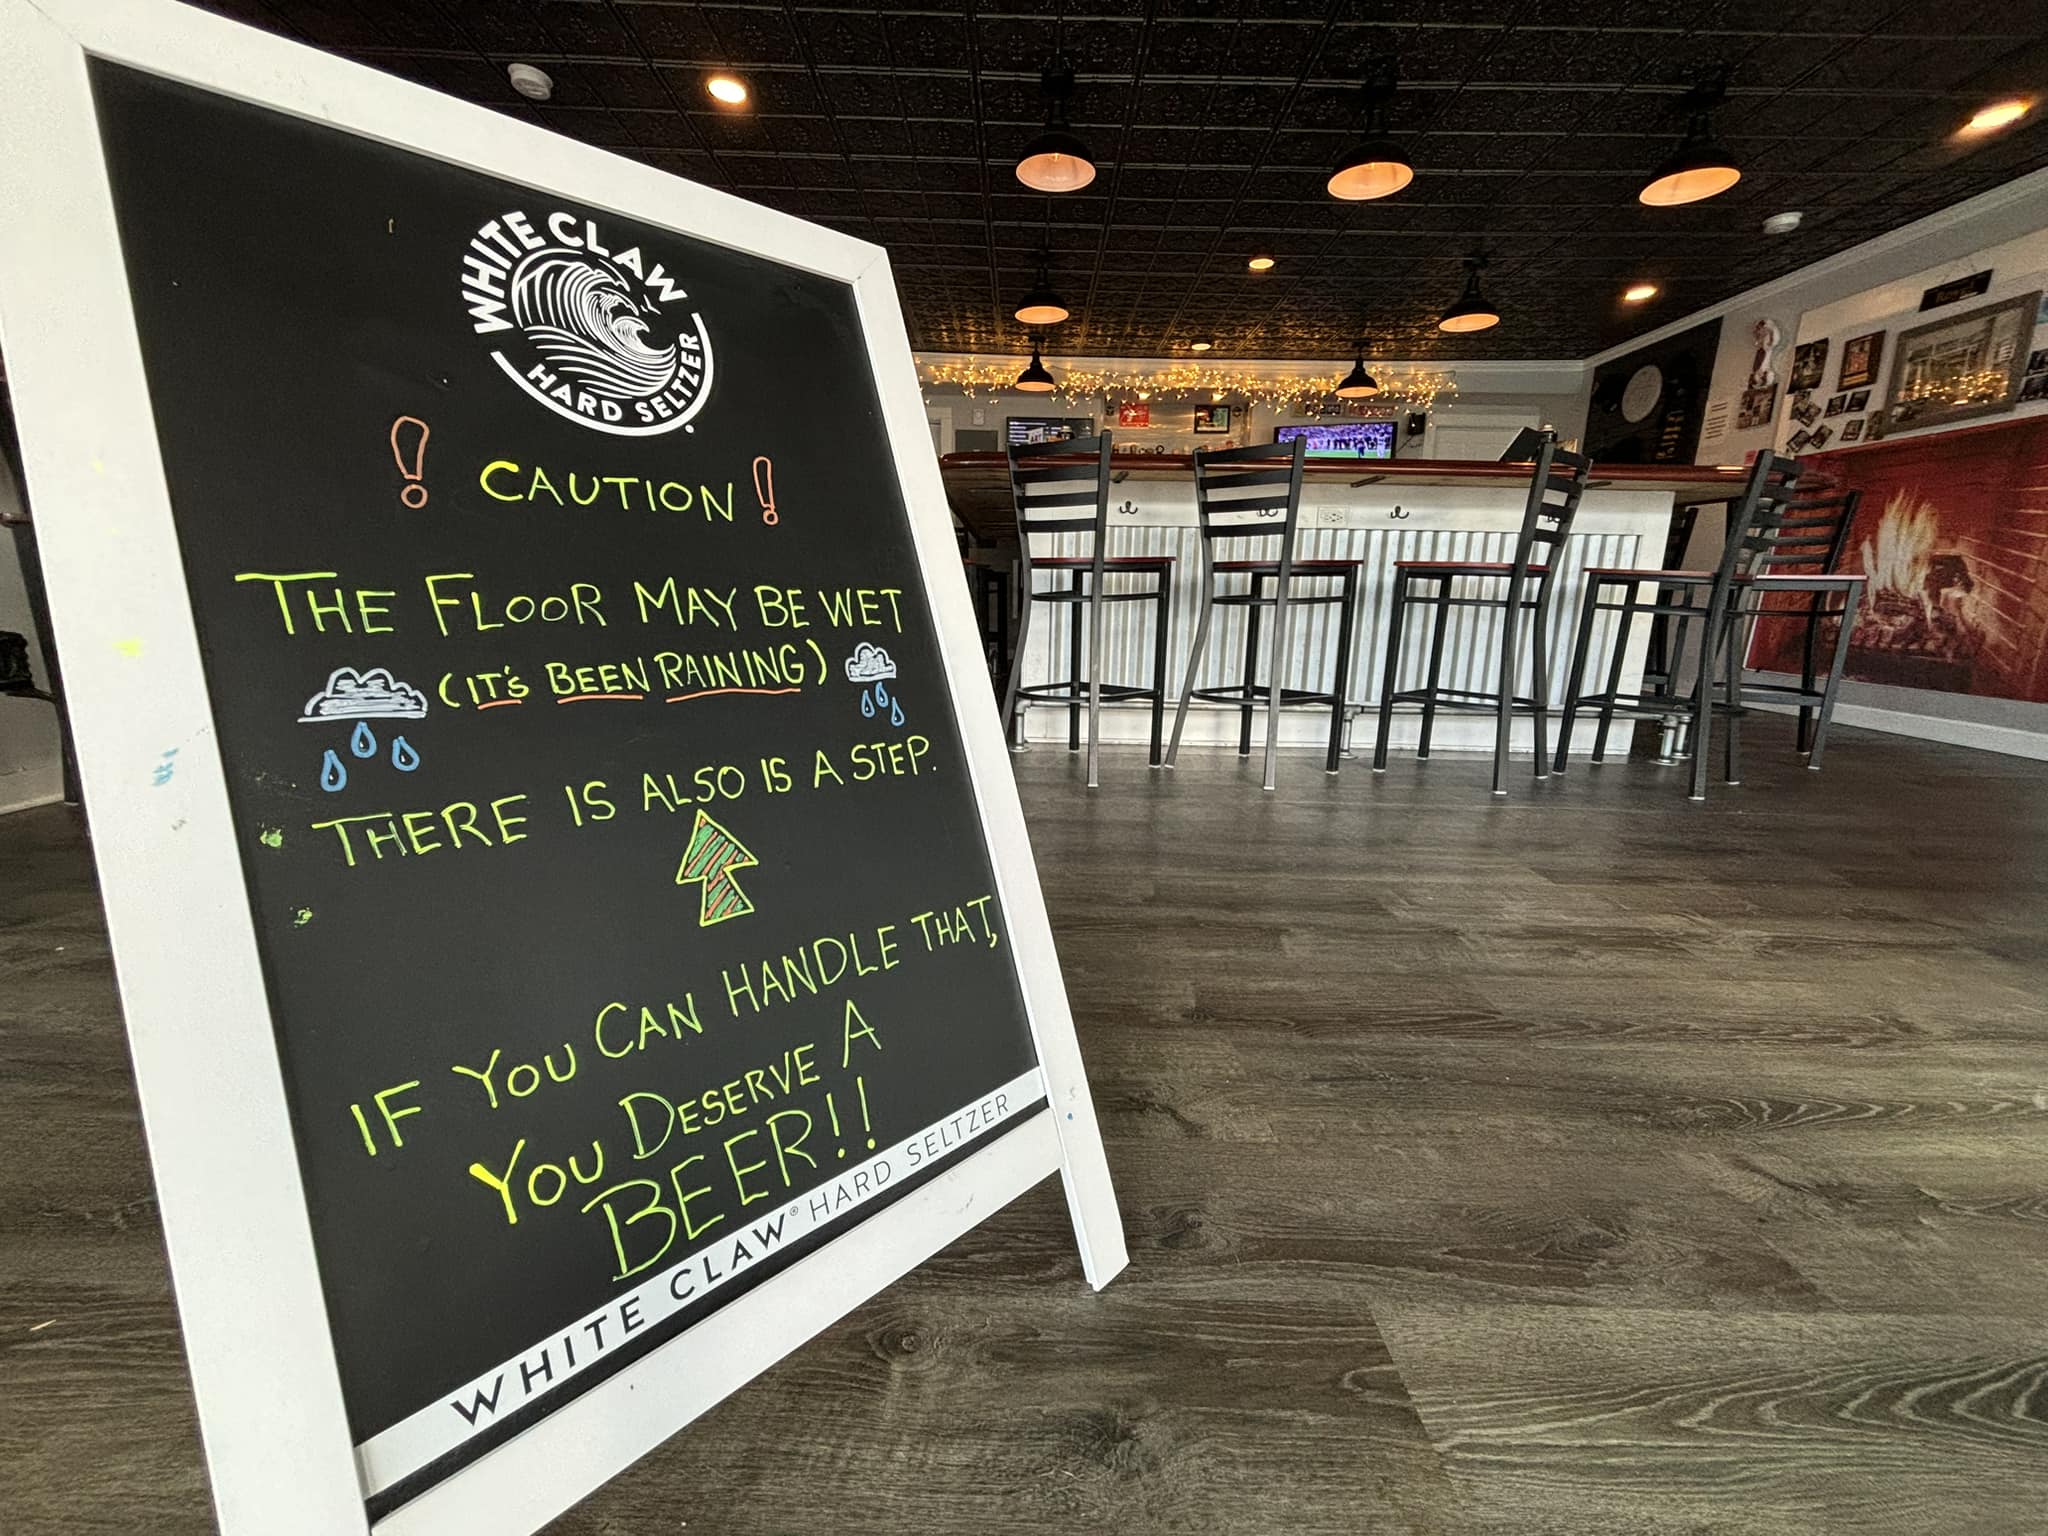 WHITE CLAW
HARD SELTZER
! CAUTION !
THE FLOOR MAY BE WET
(IT'S BEEN RAINING)
THERE IS ALSO IS A STEP.
IF YOU CAN HANDLE THAT,
YOU DESERVE A
BEER!!
WHITE CLAW® HARD SELTZER